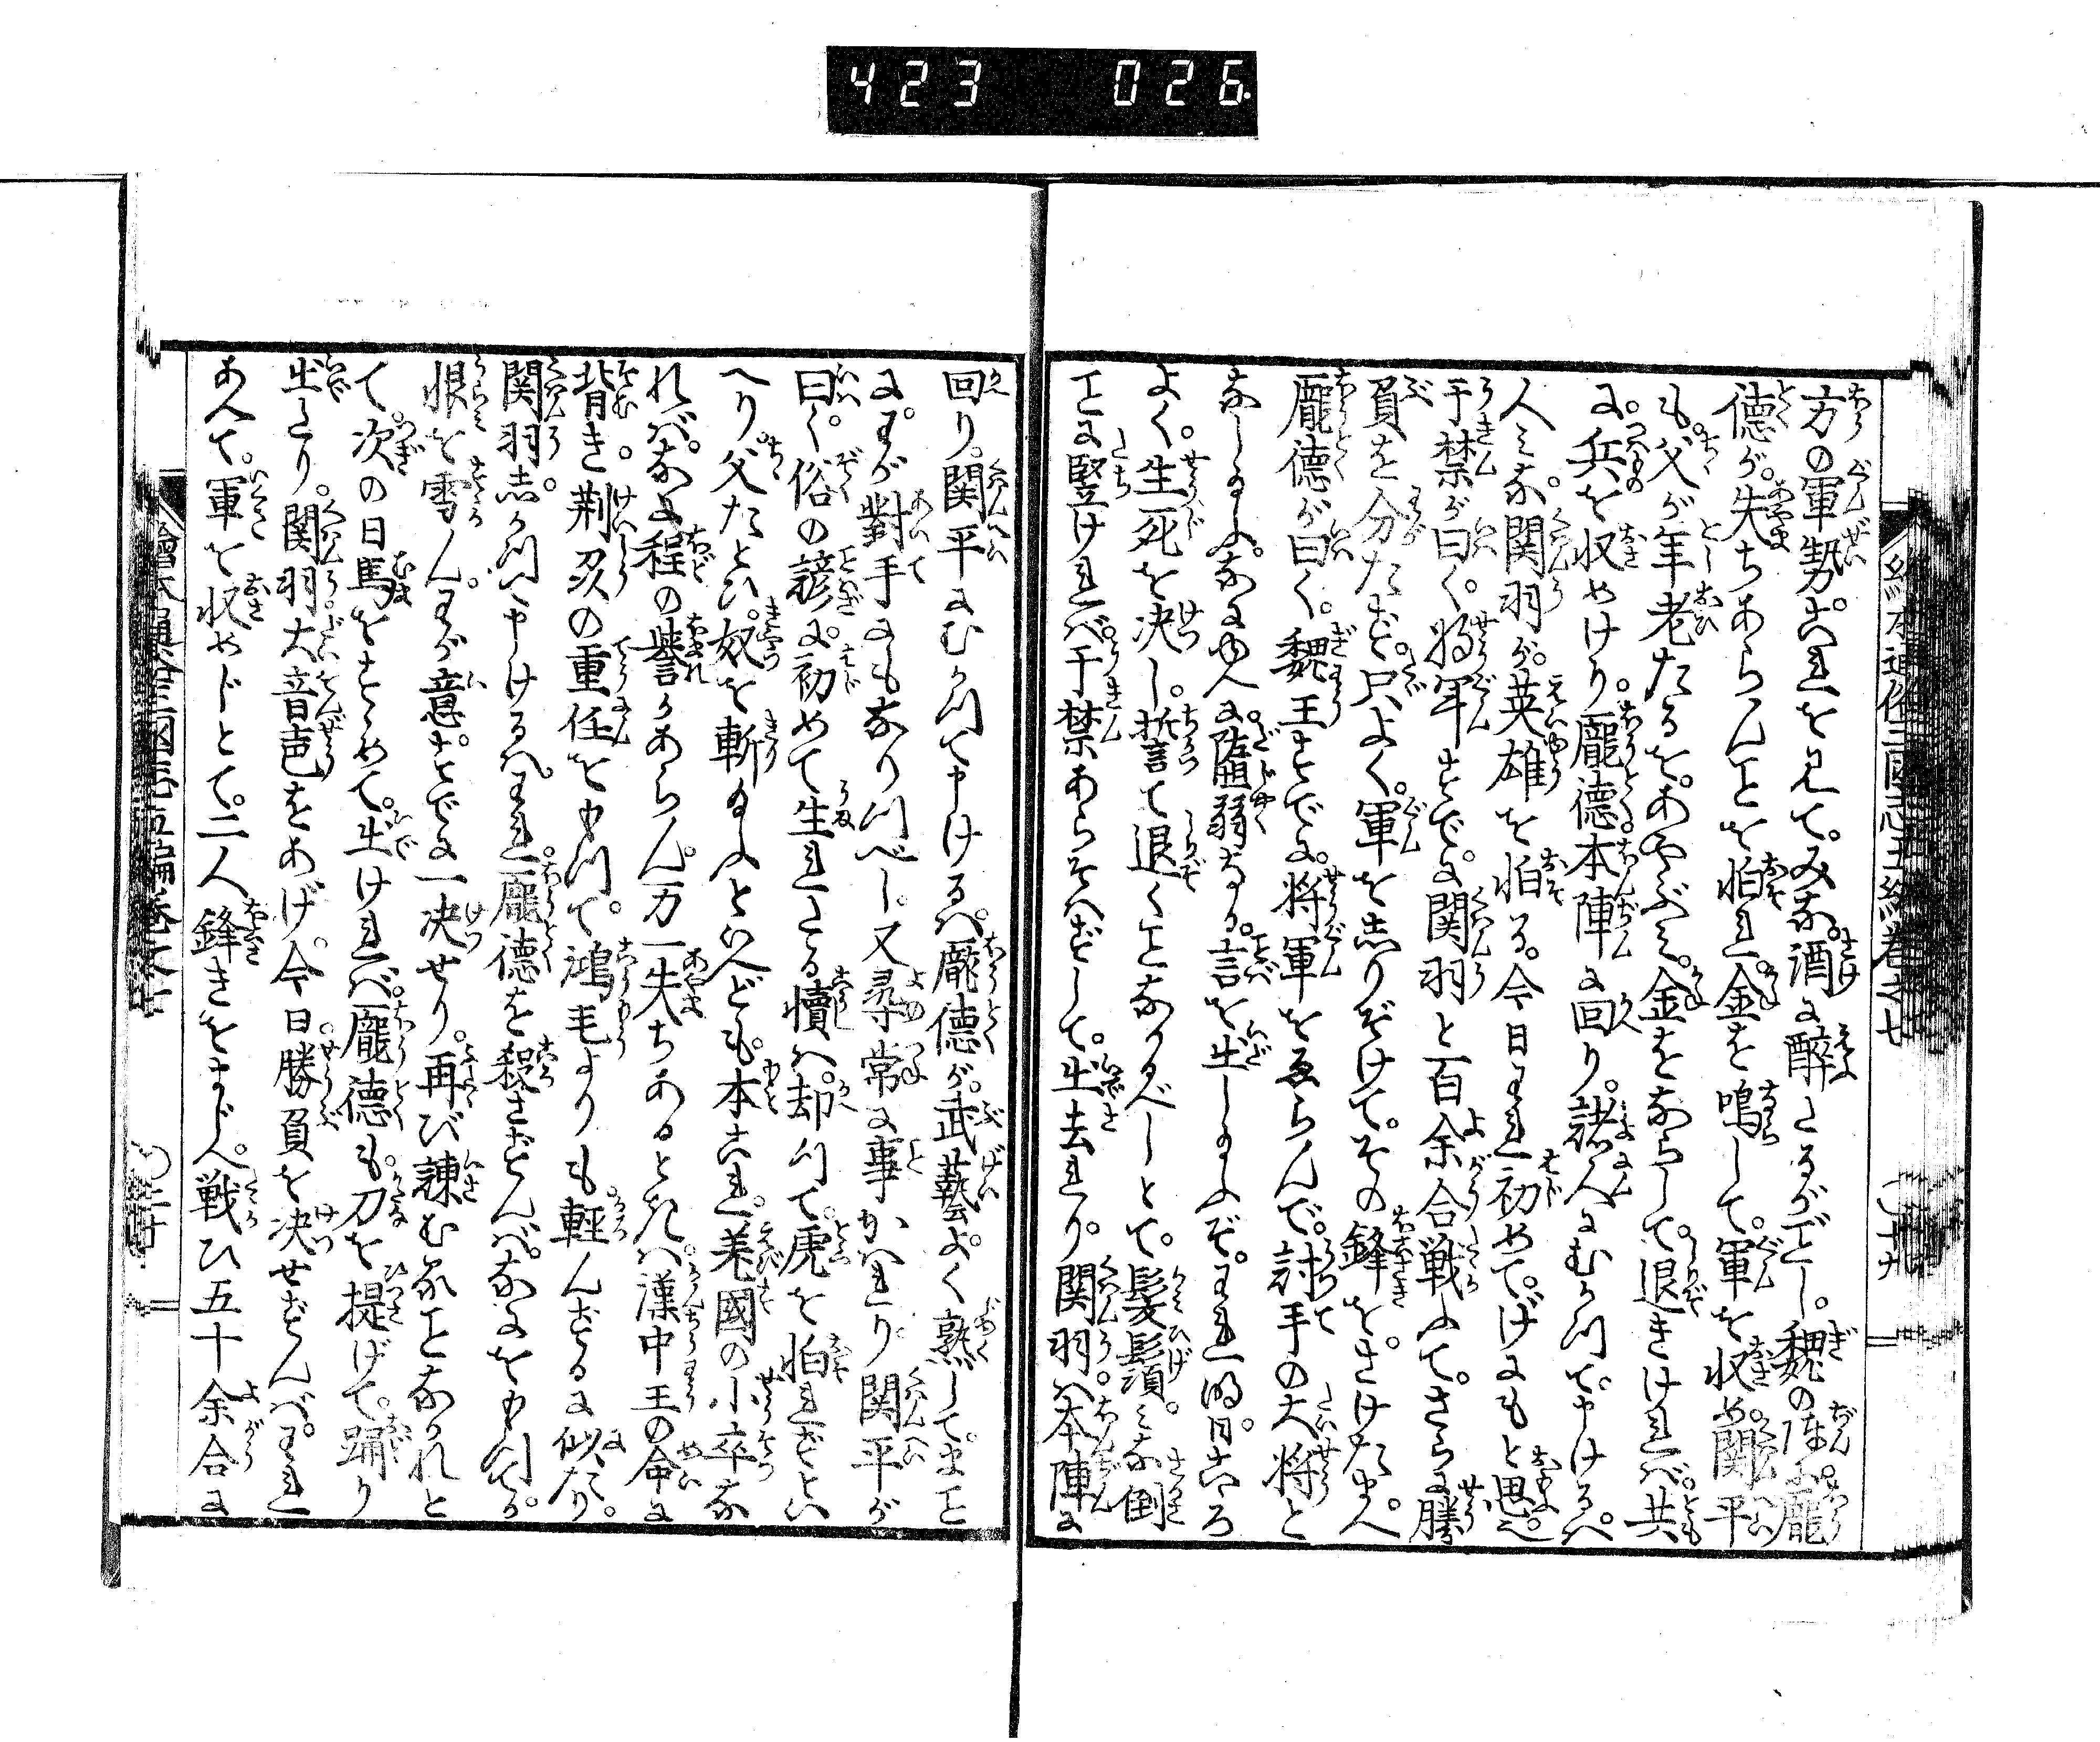 423 026
方の軍勢。これを見て。みな。酒に醉たるがごとし。魏の陣に。龐
德が。失ちあらんことを怕れ。金を鳴して。軍を収め。関平
も。父が年老たるを。あやぶみ。金をならして。退きければ。共
に。兵を収めけり。龐德本陣に回り。諸人にむかつて申けるハ。
人みな。関羽が。英雄を怕る。今日われ初めて。げにもと思へり。
于禁が曰く。将軍すでに。関羽と百余合戦ふて。さらに勝
負を分たず。只よく。軍を志りぞけて。その鋒を。さけたまへ。
龐德が曰く。魏王すでに。将軍をゑらんで。討手の大将と
なしたまふ。なにゆへに。䘌弱なる。言を出したまふぞ。われ明日。こゝろ
よく。生死を決し。誓て退くことなかるべしとて。髪鬚。みな倒
ことに竪ければ。于禁あらそハずして。出去れり。関羽ハ本陣に
繪本通俗三國志五編巻之七 〇十九
回り。関平にむかつて申けるハ。龐德が。武藝。よく熟して。まこと
に。わが對手にもなりつべし。又尋常に事かハれり。関平が
曰く。俗の諺に。初めて生れたる犢ハ。却つて。虎を怕れずとい
へり。父たとひ。奴を斬たまふといへども。本これ。羌國の小卒な
れバ。なに程の譽かあらん。万一失ちあるときハ。漢中王の命に
背き。荆刄の重任をもつて。鴻毛よりも輕んずるに似たり。
関羽。志かつて申けるハ。われ龐德を殺さずんバ。なにをもつてか。
恨を雪ん。わが意。すでに一决せり。再び諫むることなかれと
て。次の日馬をすゝめて。出ければ。龐德も。刀を提げて。踊り
出たり。関羽大音声をあげ。今日。勝負を决せずんバ。われ
あへて。軍を収めじとて。二人鋒きをまじへ。戦ひ五十余合に
繪本通俗三國志五編巻之七 〇二十